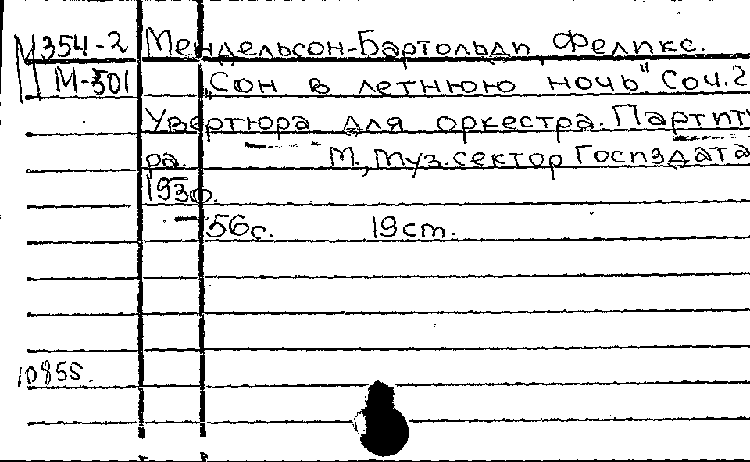 М354-2 Мендельсон-Бартольди, Феликс.
М-501 „Сон в летнюю ночь". Соч.2
Увертюра для оркестра. Партит
ра. М., Муз.сектор Госиздата
1930.
56с. 19ст.
10855.